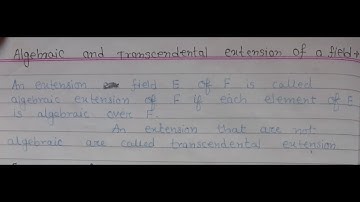 Algebraic and transcendental extension of a field
An extension field E of F is called
algebraic extension of F if each element of E
is algebraic over F.
An extension that are not
algebraic are called transcendental extension